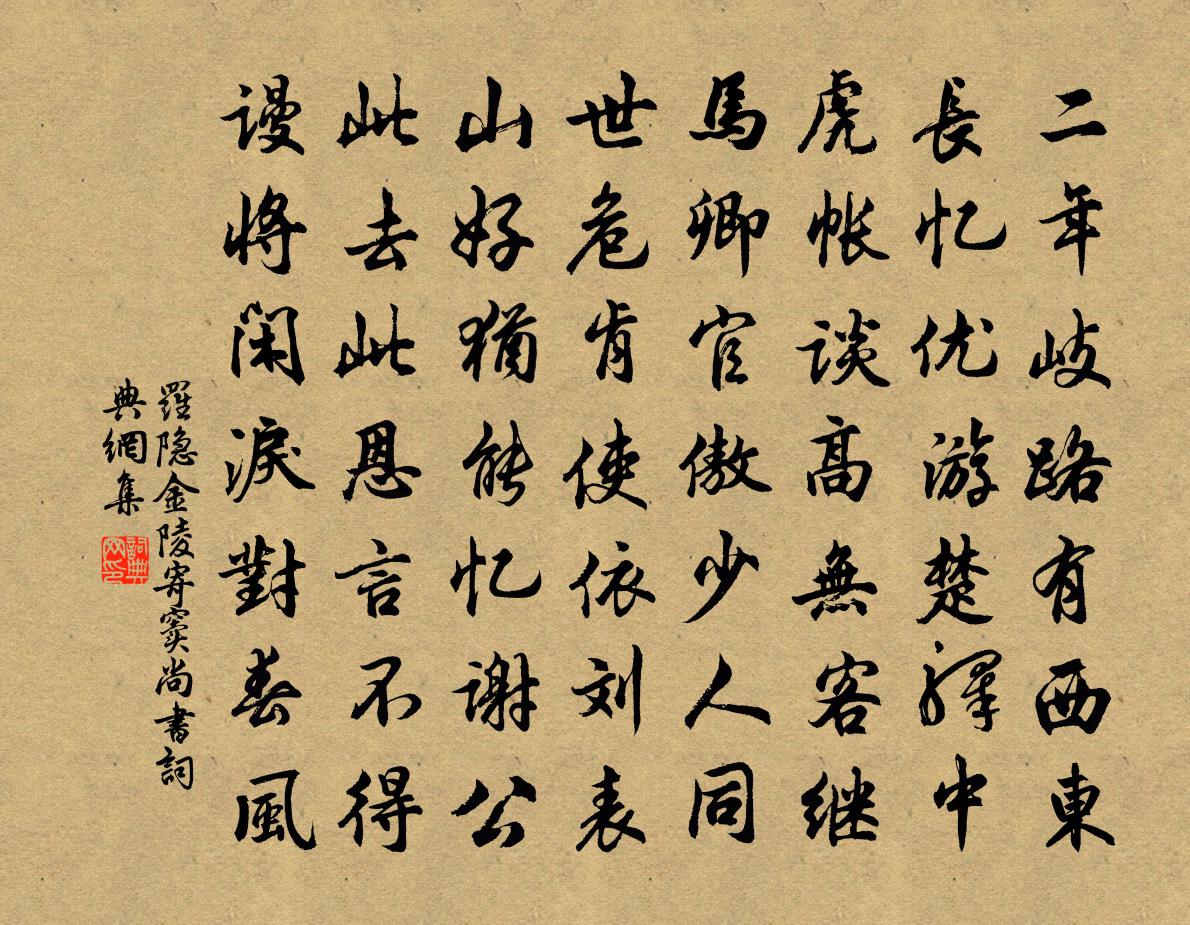 二年岐路有西東
長忆优游楚驛中
虎帐談高無客继
馬卿官傲少人同
世危肯使依刘表
山好猶能忆谢公
此去此恩言不得
谩将闲淚對春風
羅隐金陵寄窦尚書詞
典網集
詞典网印